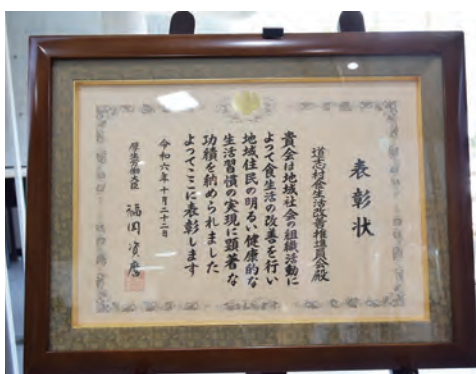 表彰状
道志村食生活改善推進員会殿
貴会は地域社会の組織活動に
よって食生活の改善を行い
地域住民の明るい健康的な
生活習慣の実現に顕著な
功績を納められました
よってここに表彰します
令和六年十月二十二日
厚生労働大臣 福岡資麿